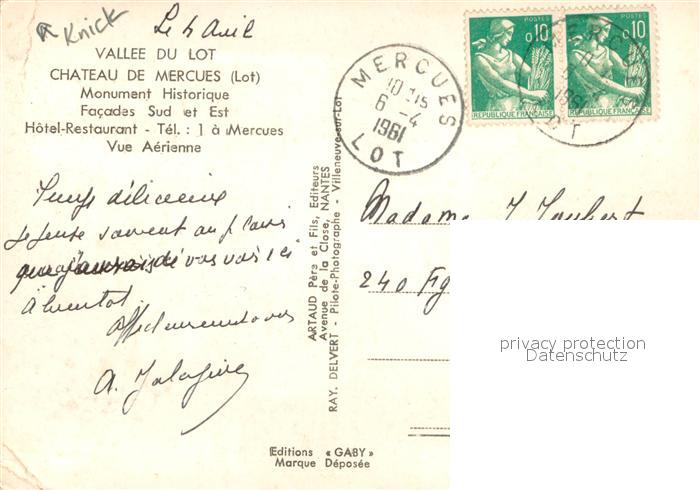 Knick
Le 4 Avril
VALLEE DU LOT
CHATEAU DE MERCUES (Lot)
Monument Historique
Façades Sud et Est
Hôtel-Restaurant - Tél. : 1 à Mercues
Vue Aérienne
Temps délicieux
Je pense souvent au plaisir
que j'aurais de vous voir ici
A bientôt
Affectueusement à vous
A.
ARTAUD Père et Fils, Editeurs
Avenue de la Close, NANTES
RAY. DELVERT - Pilote-Photographe - Villeneuve-sur-Lot
Editions « GABY »
Marque Déposée
MERCUES
10 H15
6 - 4
1961
LOT
POSTES
0,10
REPUBLIQUE FRANÇAISE
POSTES
0,10
REPUBLIQUE FRANÇAISE
1961
Madame J. Joubert
240 Fg
privacy protection
Datenschutz